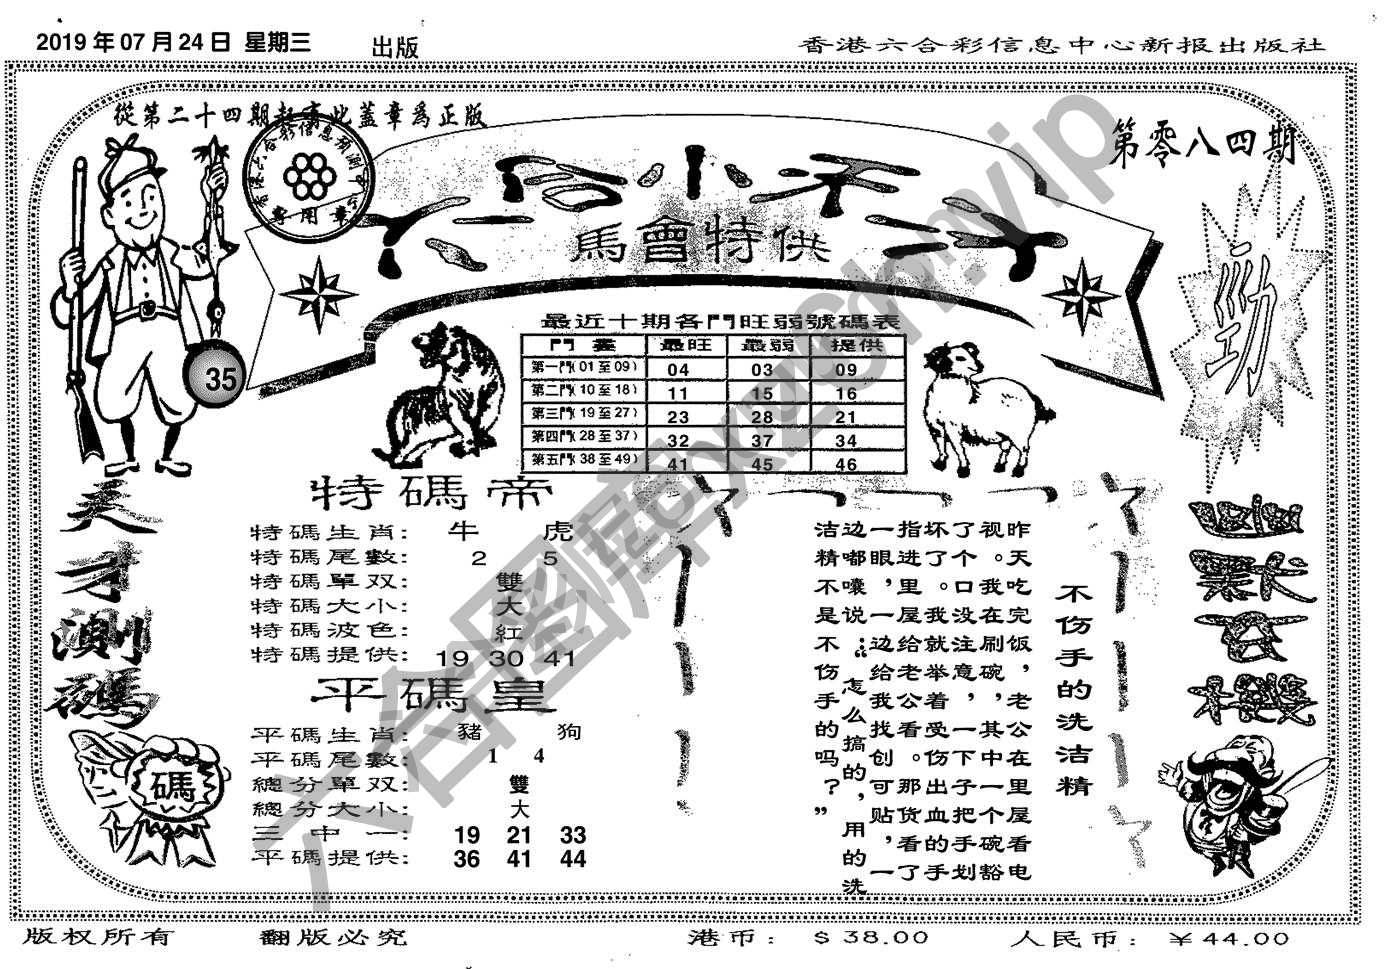 2019 年 07 月 24 日 星期三 出版
香港六合彩信息中心新报出版社
從第二十四期起蓋章爲正版
第零八四期
馬會特供
勁
35
最近十期各門旺弱號碼表
門 最旺 最弱 提供
第一門(01 至 09) 04 03 09
第二門(10 至 18) 11 15 16
第三門(19 至 27) 23 28 21
第四門(28 至 37) 32 37 34
第五門(38 至 49) 41 45 46
天才測碼
碼
特碼帝
特碼生肖: 牛 虎
特碼尾數: 2 5
特碼單双: 雙
特碼大小: 大
特碼波色: 紅
特碼提供: 19 30 41
平碼皇
平碼生肖: 豬 狗
平碼尾數: 1 4
總分單双: 雙
總分大小: 大
三中一: 19 21 33
平碼提供: 36 41 44
不伤手的洗洁精
昨天吃完饭，老公在里屋看电
视。我在刷碗，其中一个碗豁
了个口没注意，一下子把手划
坏了。我就举着受伤出血的手
指进里屋给老公看。那货看了
一眼，一边给我找创可贴，一
边嘟囔说：“怎么搞的，用的洗
洁精不是不伤手的吗？”
版权所有 翻版必究 港币: $ 38.00 人民币: ￥44.00